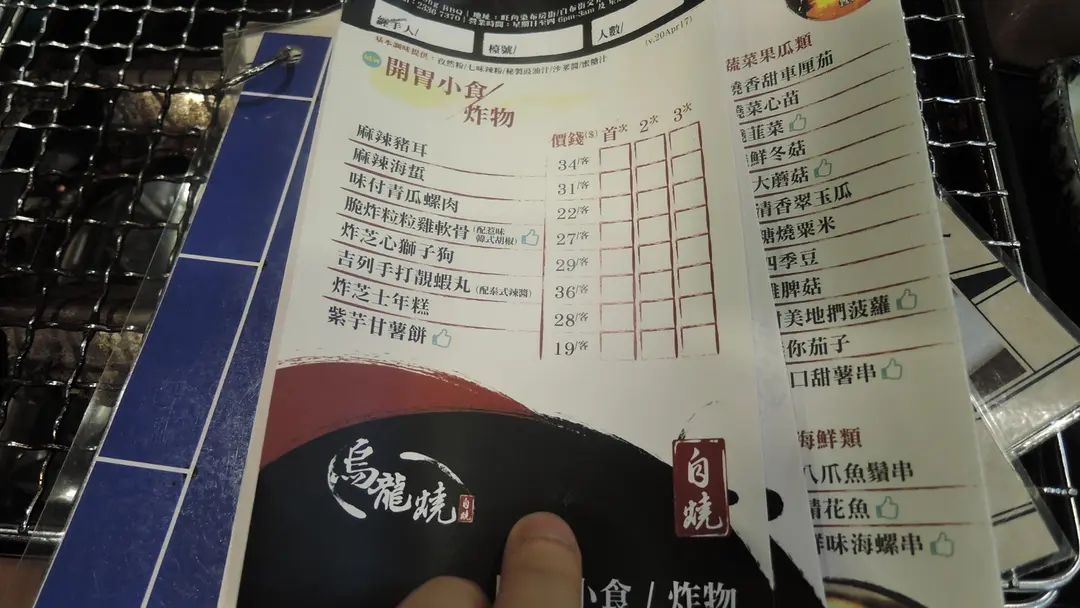 2336 7370 | 營業時間：星期日至四 6pm-3am 及
地址：旺角染布房街/白布街交
經手人/
檯號/
人數/
(v.20Apr17)
基本調味提供：孜然粉/七味辣粉/秘製豉油汁/沙爹醬/蜜糖汁
開胃小食/
炸物
價錢($) 首次 2次 3次
麻辣豬耳 34/客
麻辣海蜇 31/客
味付青瓜螺肉 22/客
脆炸粒粒雞軟骨 (配惹味韓式胡椒) 27/客
炸芝心獅子狗 29/客
吉列手打靚蝦丸 (配泰式辣醬) 36/客
炸芝士年糕 28/客
紫芋甘薯餅 19/客
烏龍燒
自燒
自燒
小食 / 炸物
蔬菜果瓜類
燒香甜車厘茄
燒菜心苗
韮菜
鮮冬菇
大蘑菇
清香翠玉瓜
糖燒粟米
四季豆
雞脾菇
美地捫菠蘿
你茄子
口甜薯串
海鮮類
八爪魚鬚串
花魚
鮮味海螺串